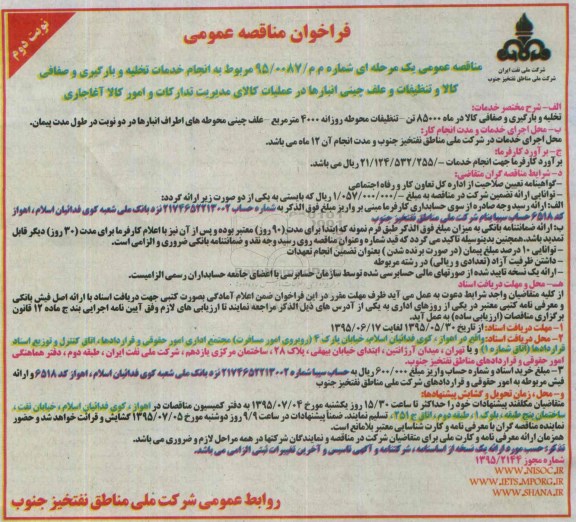 نوبت دوم
فراخوان مناقصه عمومی
شرکت ملی نفت ایران
شرکت ملی مناطق نفتخیز جنوب
مناقصه عمومی یک مرحله ای شماره م م/۹۵/۰۰۸۷ مربوط به انجام خدمات تخلیه و بارگیری و صفافی
کالا و تنظیفات و علف چینی انبارها در عملیات کالای مدیریت تدارکات و امور کالا آغاجاری
الف- شرح مختصر خدمات:
تخلیه و بارگیری و صفافی کالا در ماه ۸۵۰۰۰ تن - تنظیفات محوطه روزانه ۴۰۰۰ مترمربع - علف چینی محوطه های اطراف انبارها در دو نوبت در طول مدت پیمان.
ب- محل اجرای خدمات و مدت انجام کار:
محل اجرای خدمات در شرکت ملی مناطق نفتخیز جنوب و مدت انجام آن ۱۲ ماه می باشد.
ج- برآورد کارفرما:
برآورد کارفرما جهت انجام خدمات -/۲۱/۱۲۴/۵۳۲/۲۵۵ ریال می باشد.
د- شرایط مناقصه گران متقاضی:
- گواهینامه تعیین صلاحیت از اداره کل تعاون کار و رفاه اجتماعی
- توانایی ارائه تضمین شرکت در مناقصه به مبلغ -/۱/۰۵۷/۰۰۰/۰۰۰ ریال که بایستی به یکی از دو صورت زیر ارائه گردد:
الف: ارائه رسید وجه صادره از سوی حسابداری کارفرما مبنی بر واریز مبلغ فوق الذکر به شماره حساب ۲۱۷۴۶۵۲۲۱۳۰۰۲ نزد بانک ملی شعبه کوی فدائیان اسلام، اهواز
کد ۶۵۱۸ حساب سیبا بنام شرکت ملی مناطق نفتخیز جنوب
ب: ارائه ضمانتنامه بانکی به میزان مبلغ فوق الذکر طبق فرم نمونه که ابتدا برای مدت (۹۰ روز) معتبر بوده و پس از آن نیز با اعلام کارفرما برای مدت (۳۰ روز) دیگر قابل
تمدید باشد. همچنین بدینوسیله تاکید می گردد که قید شماره و عنوان مناقصه روی رسید وجه نقد و ضمانتنامه بانکی ضروری و الزامی است.
- توانایی ۱۰ درصد مبلغ پیمان (در صورت برنده شدن) بعنوان تضمین انجام تعهدات
- داشتن ظرفیت آزاد (تعدادی و ریالی) در رشته مربوطه
- ارائه یک نسخه تایید شده از صورتهای مالی حسابرسی شده توسط سازمان حسابرسی یا اعضای جامعه حسابداران رسمی الزامیست.
هـ- محل و مهلت دریافت اسناد
از کلیه متقاضیان واجد شرایط دعوت به عمل می آید ظرف مهلت مقرر در این فراخوان ضمن اعلام آمادگی بصورت کتبی جهت دریافت اسناد با ارائه اصل فیش بانکی
و معرفی نامه کتبی معتبر در یکی از روزهای اداری به یکی از آدرس های ذیل الذکر مراجعه نمایند تا ارزیابی های لازم وفق آیین نامه اجرایی بند ج ماده ۱۲ قانون
برگزاری مناقصات (ارزیابی ساده) به عمل آید.
۱- مهلت دریافت اسناد: از تاریخ ۱۳۹۵/۰۵/۳۰ لغایت ۱۳۹۵/۰۶/۱۷
۲- محل دریافت اسناد: واقع در اهواز، کوی فدائیان اسلام، خیابان پارک ۴ (روبروی امور مسافرت) مجتمع اداری امور حقوقی و قراردادها، اتاق کنترل و توزیع اسناد
قراردادها (اتاق شماره ۱) و یا تهران، میدان آرژانتین، ابتدای خیابان بیهقی، پلاک ۲۸، ساختمان مرکزی یازدهم، شرکت ملی نفت ایران، طبقه دوم، دفتر هماهنگی
امور حقوقی و قراردادهای مناطق نفتخیز جنوب.
۳- مبلغ خرید اسناد و شماره حساب واریز مبلغ ۶۰۰/۰۰۰ ریال به حساب سیبا شماره ۲۱۷۴۶۵۲۲۱۳۰۰۲ نزد بانک ملی شعبه کوی فدائیان اسلام، اهواز کد ۶۵۱۸ و ارائه
فیش مربوطه به امور حقوقی و قراردادهای شرکت ملی مناطق نفتخیز جنوب
و- محل، زمان تحویل و گشایش پیشنهادها:
متقاضیان مکلفند پیشنهادات خود را حداکثر تا ساعت ۱۵/۳۰ روز یکشنبه مورخ ۱۳۹۵/۰۷/۰۴ به دفتر کمیسیون مناقصات در اهواز، کوی فدائیان اسلام، خیابان نفت،
ساختمان پنج طبقه، بلوک ۱، طبقه دوم، اتاق ج ۲۵۱، تسلیم نمایند. ضمناً پیشنهادات در ساعت ۹/۹ روز دوشنبه مورخ ۱۳۹۵/۰۷/۰۵ گشایش و قرائت خواهد شد و حضور
نماینده مناقصه گران با معرفی نامه و کارت شناسایی معتبر بلامانع است.
همزمان ارائه معرفی نامه و کارت ملی برای متقاضیان شرکت در مناقصه و نمایندگان شرکتها در همه مراحل لازم و ضروری می باشد.
تذکر: حسب مورد ارائه یک نسخه از اساسنامه، شرکتنامه و آگهی تاسیس و آخرین تغییرات ثبتی الزامی می باشد.
شماره مجوز ۱۳۹۵/۲۱۴۴
WWW.NISOC.IR
WWW.IETS.MPORG.IR
WWW.SHANA.IR
روابط عمومی شرکت ملی مناطق نفتخیز جنوب